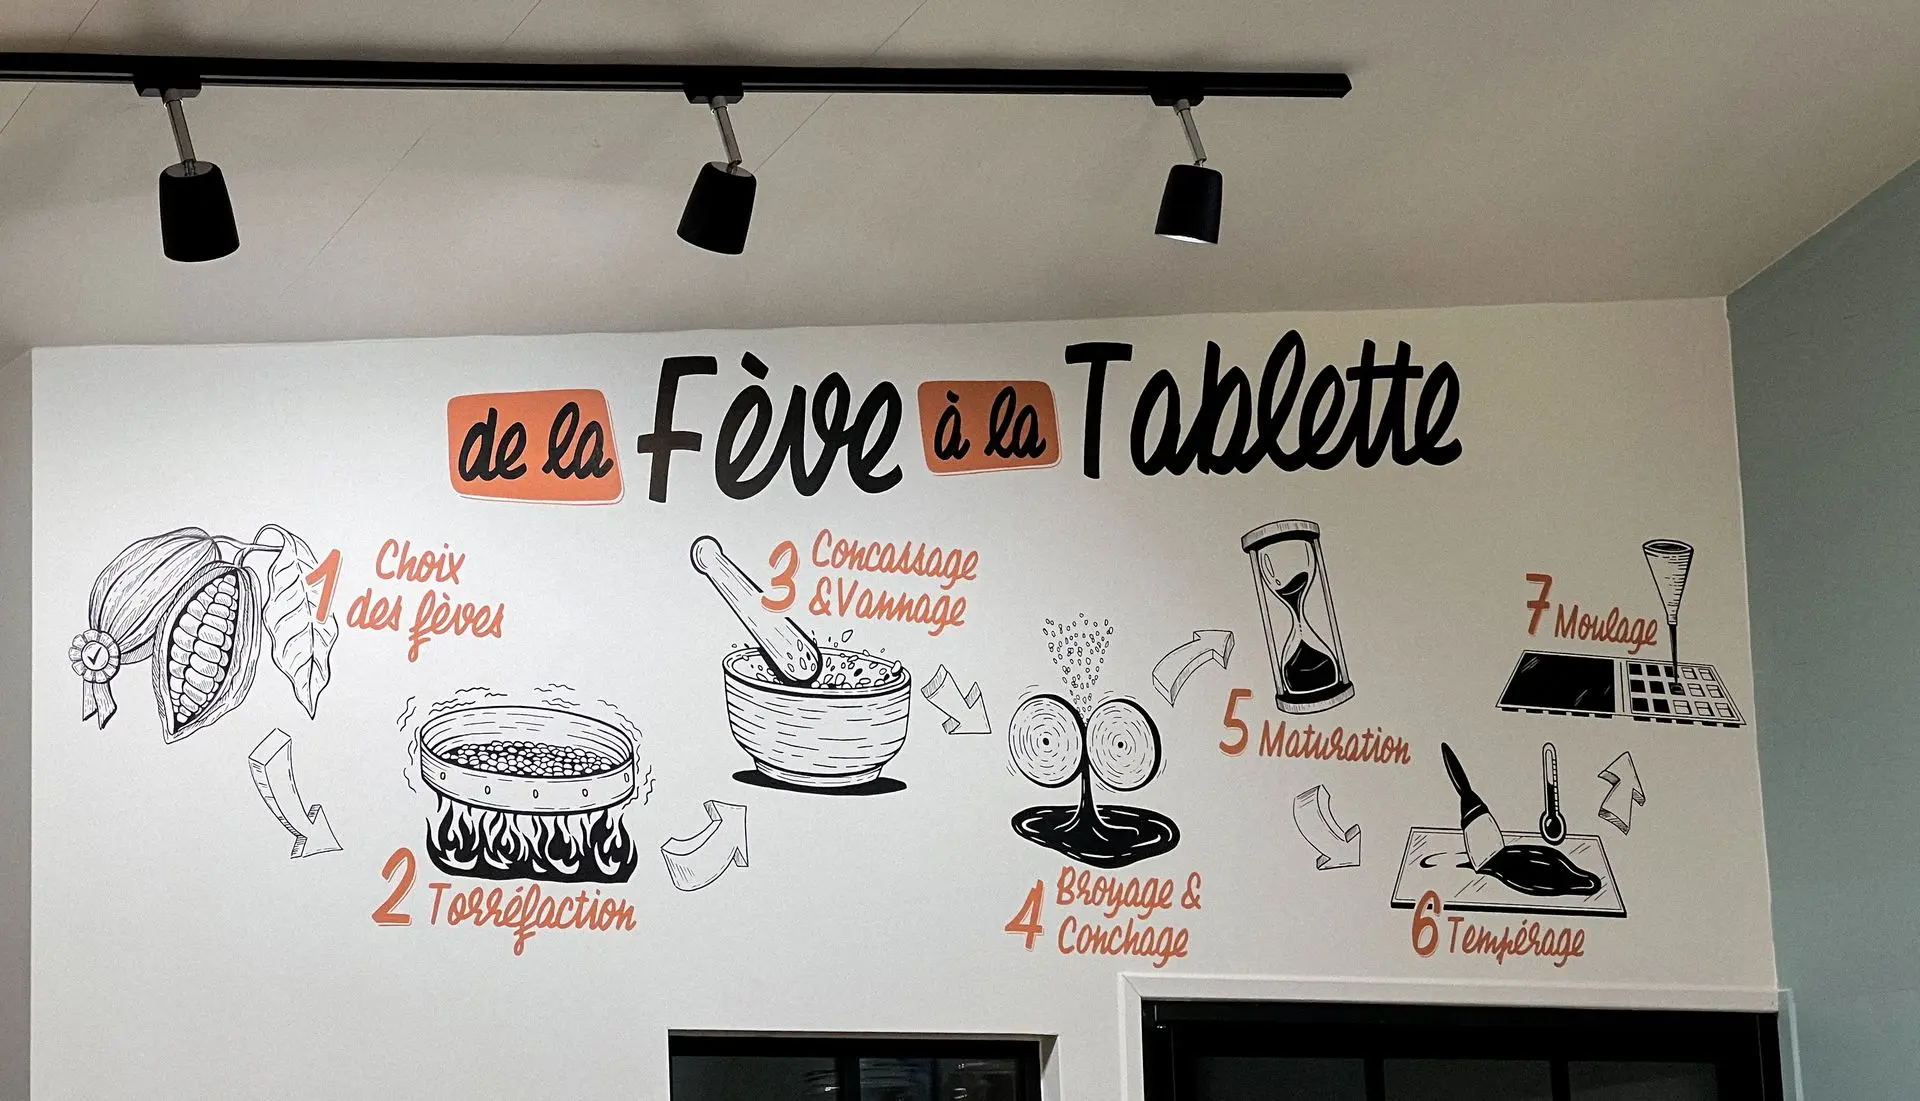 de la Fève à la Tablette
1 Choix
des fèves
2 Torréfaction
3 Concassage
& Vannage
4 Broyage &
Conchage
5 Maturation
6 Tempérage
7 Moulage